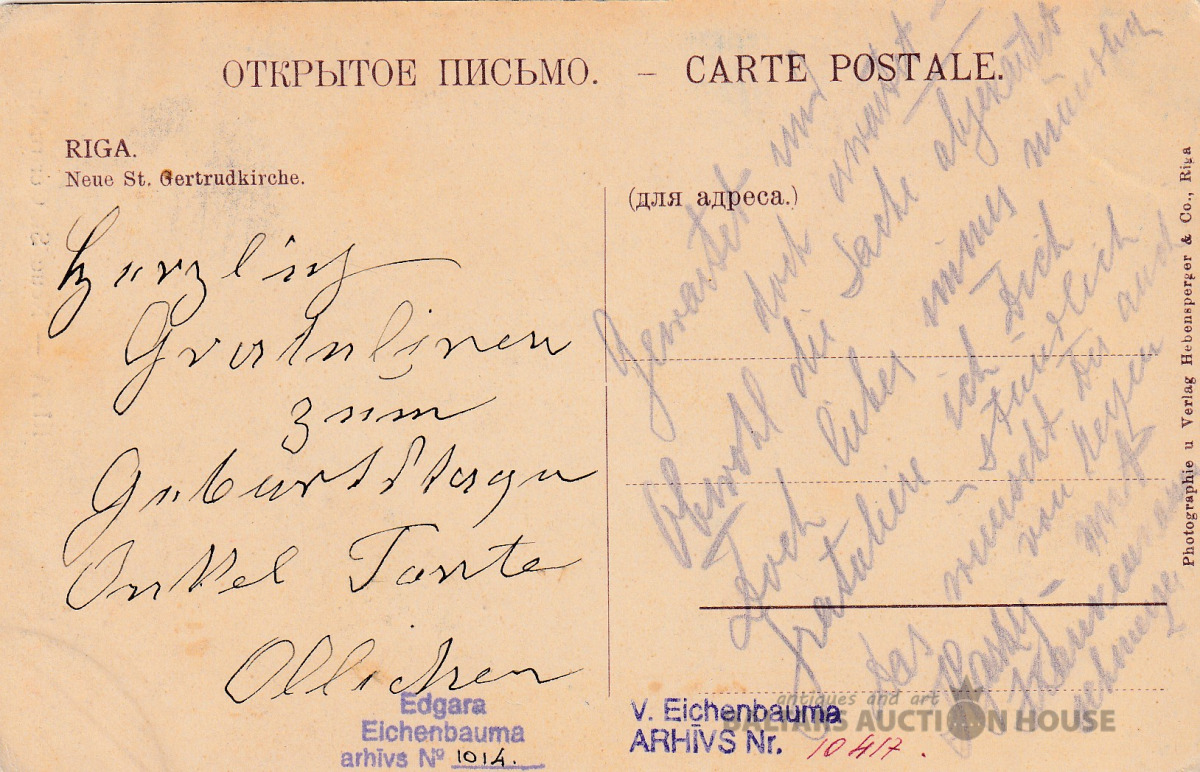 ОТКРЫТОЕ ПИСЬМО. – CARTE POSTALE.
RIGA.
Neue St. Gertrudkirche.
Herzlich
Gratuliren
zum
Geburtstage
Onkel Tante
Ollichen
(для адреса.)
Gewartet und
doch erwartet
Obwohl die Sache abgekühlt
Doch liebes
gratuliere ich Dich
stündlich
Das wünscht Dir auch
von Herzen
mit
Photographie u Verlag Hebensperger & Co., Riga
Edgara
Eichenbauma
arhīvs № 1014.
V. Eichenbauma
ARHĪVS Nr. 10417.
antiques and art
BALTARS AUCTION HOUSE